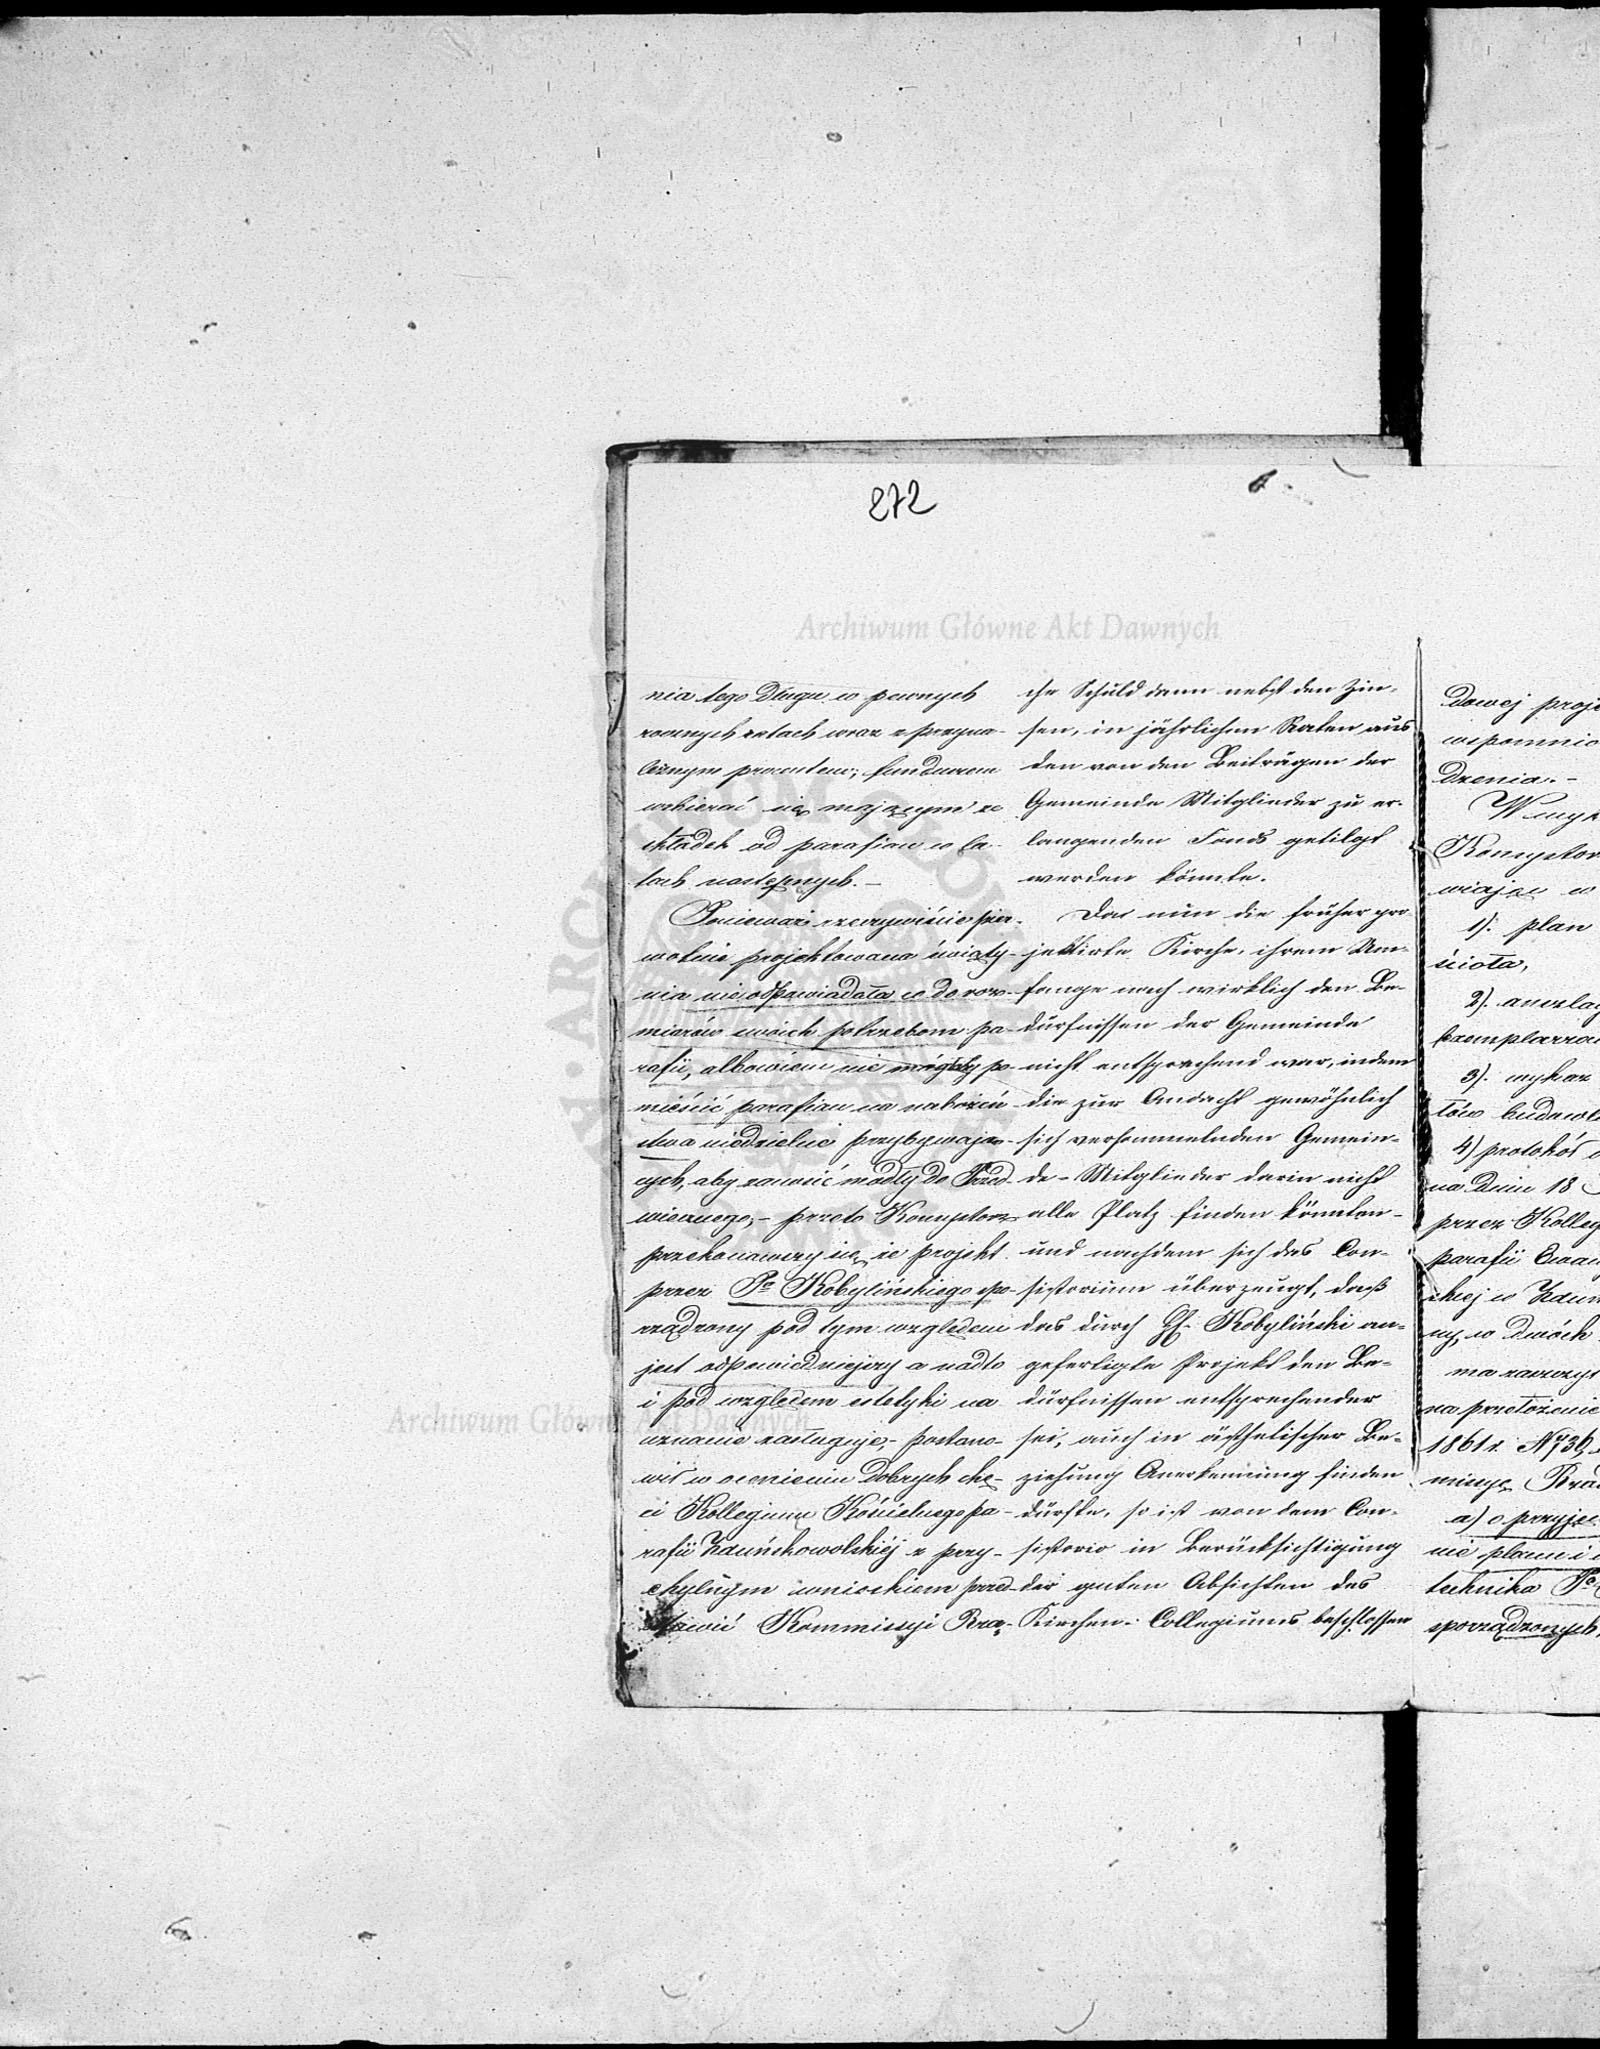 272
Archiwum Główne Akt Dawnych
nia tego długu w pewnych
rocznych ratach wraz z przyna-
leżnym procentem; funduszem
uzbierać się mającym ze
składek od parafian w la-
tach następnych. –
Ponieważ rzeczywiście pier-
wotnie projektowana świąty-
nia nie odpowiadała co do roz-
miarów swoich potrzebom pa-
rafii, albowiem nie mogłaby po-
mieścić parafian na nabożeń-
stwa niedzielne przybywają-
cych, aby zanosić modły do Przed-
wiecznego, – przeto Konsystorz
przekonawszy się, że projekt
przez Po Kobylińskiego spo-
rządzony pod tym względem
jest odpowiedniejszy a nadto
i pod względem estetyki na
uznanie zasługuje, – postano-
wił w ocenieniu dobrych chę-
ci Kollegium Kościelnego pa-
rafii Zduńskowolskiéj z przy-
chylnym wnioskiem przed-
stawić Kommissyi Rzą-
che Schuld dann nebst den Zin-
sen, in jährlichen Raten aus
den von den Beiträgen der
Gemeinde Mitglieder zu er-
langenden Fonds getilgt
werden könnte.
Da nun die früher pro-
jektirte Kirche, ihrem Um-
fange nach wirklich den Be-
dürfnissen der Gemeinde
nicht entsprechend war, indem
die zur Andacht gewöhnlich
sich versammelnden Gemein-
de-Mitglieder darin nicht
alle Platz finden könnten –
und nachdem sich das Con-
sistorium überzeugt, daß
das durch H. Kobyliński an-
gefertigte Projekt den Be-
dürfnissen entsprechender
sei, auch in ästhetischer Be-
ziehung Anerkennung finden
dürfte, so ist von dem Con-
sistorio in Berücksichtigung
der guten Absichten des
Kirchen-Collegiums beschlossen
Archiwum Główne Akt Dawnych
dowej proje
wspomnio
dzenia. –
Konsystor
wiając w
1). plan
ścioła,
2). anszlag
kzemplarzac
3). wykaz
łów budowl
4) protokół
na dniu 18
przez Kolleg
parafii Ewan
skiej w Zduń
ny, w dwóch
ma zaszczyt
na przełożenie
1861 r. N 736,
missyę Rząd
a) o przyję
nie planu i
technika Po
sporządzonych,